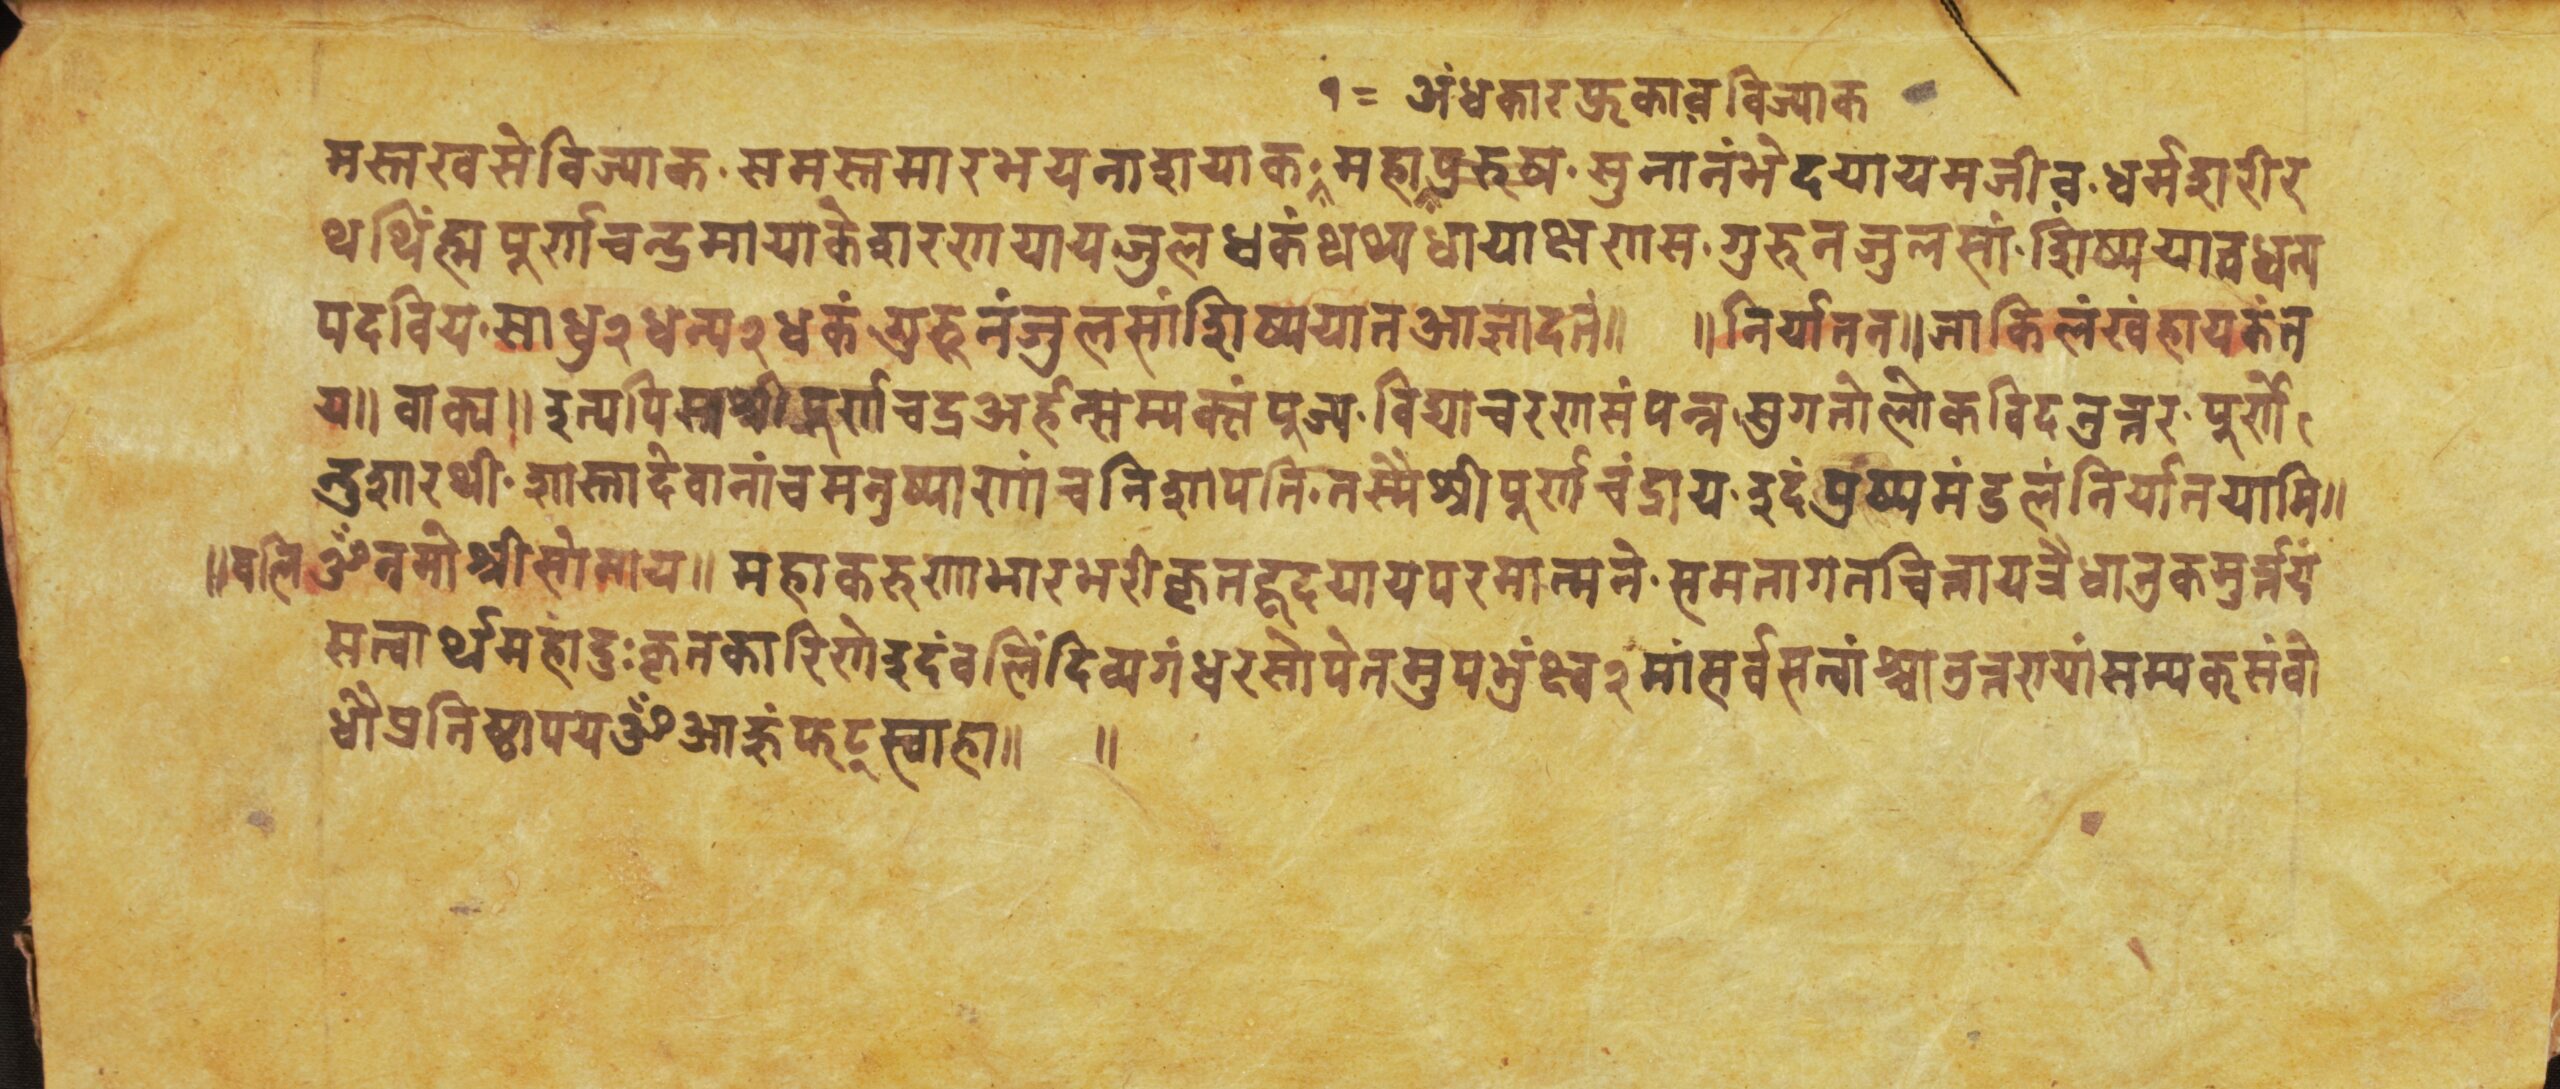 १= अंधकारफुकाव विज्याक
मस्तखसे विज्याक · समस्तमारभयनाशयाक · महापुरुष · सुनानंभेदयायमजीव · धर्मशारीर
थथिंह्म पुर्णचन्द्रमायाके शरणयायजुल धकं थथ्य धायाक्षणस · गुरुनजुलसां · शिष्ययात्वधन्य
पदविय · साधु२धन्य२धकं गुरुनंजुलसां शिष्ययात आज्ञादतं॥ ॥निर्यातन॥ जाकिलंखंहायकंत
य॥ वाक्य॥ इत्यपिसाश्रीपुर्णचद्रअर्हत्सम्यक्तंपुज्य · विद्याचरणसंपन्न सुगतोलोकविदनुत्तर · पुर्णो
न्दुशारथी · शास्तादेवानांचमनुष्याणांचनिशापति · तस्मैश्रीपुर्णचंद्राय · इदंपुष्पमंडलंनिर्यातयामि॥
॥बलि ॐनमोश्रीसोमाय॥ महाकरुणाभारभरीकृतहृदयायपरमात्मने · समतागतचित्तायत्रैधातुकमुर्त्तयं
सत्वार्थमहादुःकृतकारिणेइदंबलिंदिव्यगंधरसोपेतमुपभुंक्ष्व२मांसर्वसत्वांश्चानुत्तरायांसम्यक्संबो
धौप्रतिष्ठापय ॐ आहुंफट्स्वाहा॥ ॥